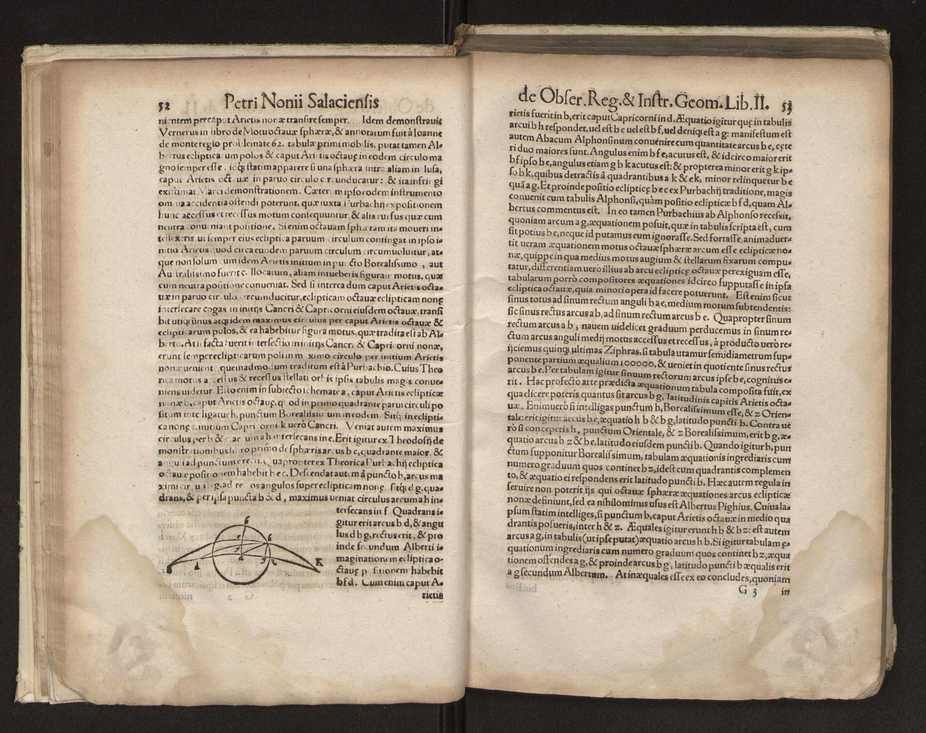 52 Petri Nonii Salaciensis
nientem per caput Arietis nonæ transire semper. Idem demonstrauit
Vernerus in libro de Motu octauæ sphæræ, & annotatum fuit à Ioanne
de monte regio problemate 62. tabulæ primi mobilis, putat tamen Al-
bertus eclipticæ polos & caput Arietis octauæ in eodem circulo ma
gno semper esse
caput Arietis octauæ in paruo circulo circunducatur: & ita
existimat Marci demonstrationem. Cæterum ipso eodem instrumento
omnia accidentia ostendi poterunt, quæ iuxta Purbachij expositionem
hunc accessus et recessus motum consequuntur, & alia rursus quæ cum
neutra conueniant positione. Si enim octauam sphæram ita moueri in-
tellexeris, ut semper eius ecliptica paruum circulum contingat in ipso i-
nitio Arietis, quod circa eundem paruum circulum circumuoluitur, at-
que non solum cum idem Arietis initium in puncto Borealissimo, aut
Australissimo fuerit collocatum, aliam intueberis figuram motus, quæ
cum neutra positione conueniat. Sed si interea dum caput Arietis octa-
uæ in paruo circulo circunducitur, eclipticam octauæ eclipticam nonæ
intersecare cogas in initijs Cancri & Capricorni eiusdem octauæ, transi
bit utique unus atque idem maximus circulus per caput Arietis octauæ &
eclipticarum polos, & ea habebitur figura motus, quæ tradita est ab Al-
berto. At si facta fuerit intersectio in initijs Cancri & Capricorni nonæ,
erunt semper eclipticarum poli in maximo circulo per initium Arietis
nonæ ueniente, quemadmodum traditum est à Purbachio. Cuius Theo
rica motus accessus & recessus stellati orbis ipsis tabulis magis conue-
niens uidetur. Esto enim in subiecto schemate a, caput Arietis eclipticæ
nonæ b, caput Arietis octauæ, quod in primo quadrante parui circuli po
situm intelligatur h, punctum Borealissimum in eodem. Sitque in eclipti-
ca nonæ c initium Capricorni k uerò Cancri. Veniat autem maximus
circulus per b &
monstrationibus libro primo de sphæricis arcus b e, quadrante maior, &
angulus ad punctum e rectus. Quapropter ex Theorica Purbachij ecliptica
octauæ positionem habebit b e c. Descendat autem à puncto h, arcus ma
ximi circuli g, ad rectos angulos super eclipticam nonæ, sitque d g, qua-
drans, & per ipsa puncta b & d, maximus ueniat circulus arcum a h in-
tersecans in f. Quadrans i-
gitur erit arcus b d, & angu
lus d b g, rectus erit, & pro
inde secundum Alberti i-
maginationem ecliptica o-
ctauæ positionem habebit
b f d. Cum enim caput A-
rietis
de Obser. Reg. & Instr. Geom. Lib. II. 53
rietis fuerit in b, erit caput Capricorni in d. Æquatio igitur quę in tabulis
arcui b h respondet, uel est b e uel est b f, uel deniq; est a g: manifestum est
autem Abacum Alphonsinum conuenire cum quantitate arcus b e, cęte
ri duo maiores sunt. Angulus enim b f e, acutus est, & idcirco maior erit
b f ipso b e, angulus etiam g b k acutus est: & propterea minor erit g k ip-
so b k, quibus detractis à quadrantibus a k & e k, minor relinquetur b e
quàm a g. Et proinde positio eclipticę b e c ex Purbachij traditione, magis
conuenit cum tabulis Alphonsi, quàm positio eclipticæ b f d, quam Al-
bertus commentus est. In eo tamen Purbachius ab Alphonso recessit,
quoniam arcum a g, æquationem posuit, quæ in tabulis scripta est, cum
sit potius b e, neque id putamus eum ignorasse. Sed fortasse, animaduer-
tit ueram æquationem motus octauæ sphæræ arcum esse eclipticæ no-
næ, quippe in qua medius motus augium & stellarum fixarum compu-
tatur, differentiam uero illius ab arcu eclipticę octauæ perexiguam esse,
tabularum porrò compositores æquationes idcirco supputasse in ipsa
ecliptica octauæ, quia minori opera id facere potuerunt. Est enim sicut
sinus totus ad sinum rectum anguli b a e, medium motum subtendentis:
sic sinus rectus arcus a b, ad sinum rectum arcus b e. Quapropter sinum
rectum arcus a b; nauem uidelicet graduum perducemus in sinum re-
ctum arcus anguli medij motus accessus et recessus, à producto uerò re-
ijciemus quinq; ultimas Ziphras, si tabula utamur semidiametrum sup-
ponente partium æqualium 100000, & ueniet in quotiente sinus rectus
arcus b e. Per tabulam igitur sinuum rectorum arcus ipse b e, cognitus e-
rit. Hac profecto arte prædicta æquationum tabula composita fuit, ex
qua elicere poteris quantus sit arcus b g, latitudinis capitis Arietis octa-
uæ. Enimuerò si intelligas punctum h, Borealissimum esse, & z Orien-
tale: erit igitur arcus b e, æquatio h b & b g, latitudo puncti b. Contra ue
rò si conceperis h, punctum Orientale, & z Borealissimum, erit b g, æ-
quatio arcus b z & b e, latitudo eiusdem puncti b. Quando igitur b, pun
ctum supponitur Borealissimum, tabulam æquationis ingrediaris cum
numero graduum quos continet b z, idest cum quadrantis complemen
to, & æquatio ei respondens erit latitudo puncti b. Hæc autem regula in
seruire non poterit ijs qui octauæ sphæræ æquationes arcus eclipticæ
nonæ definiunt, sed ea nihilominus usus est Albertus Pighius. Cuius la-
psum statim intelliges, si punctum b, caput Arietis octauæ in medio qua
drantis posueris, inter h & z. Æquales igitur erunt h b & b z: est autem
arcus a g, in tabulis (ut ipse putat) æquatio arcus h b. Si igitur tabulam æ-
quationum ingrediaris cum numero graduum quos continet b z, æqua
tionem ostendes a g, & proinde arcus b g, latitudo puncti b æqualis erit
a g secundum Albertum. At inæquales esse ex eo concludes, quoniam
G 3 in